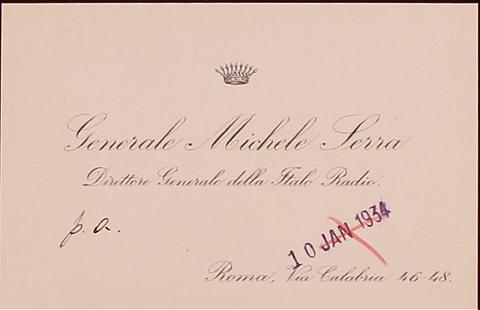 Generale Michele Serra
Direttore Generale della Italo Radio.
p. a.
10 JAN 1934
Roma, Via Calabria 46-48.